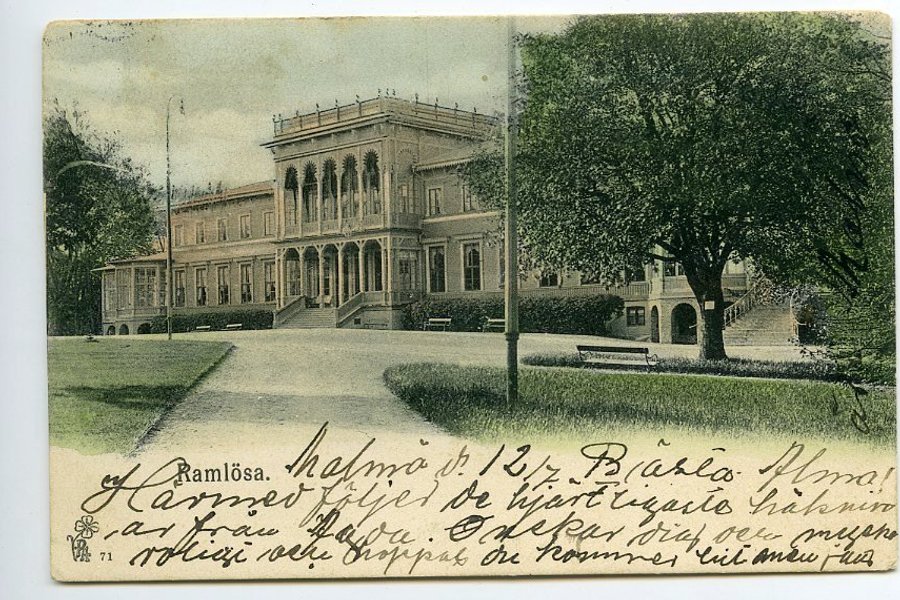 Ramlösa. Malmö d. 12/7 Bästa Alma!
Härmed följer de hjärtligaste hälsnin
ar från Onskar dig och mycke
roligt och hoppas du kommer till men
71